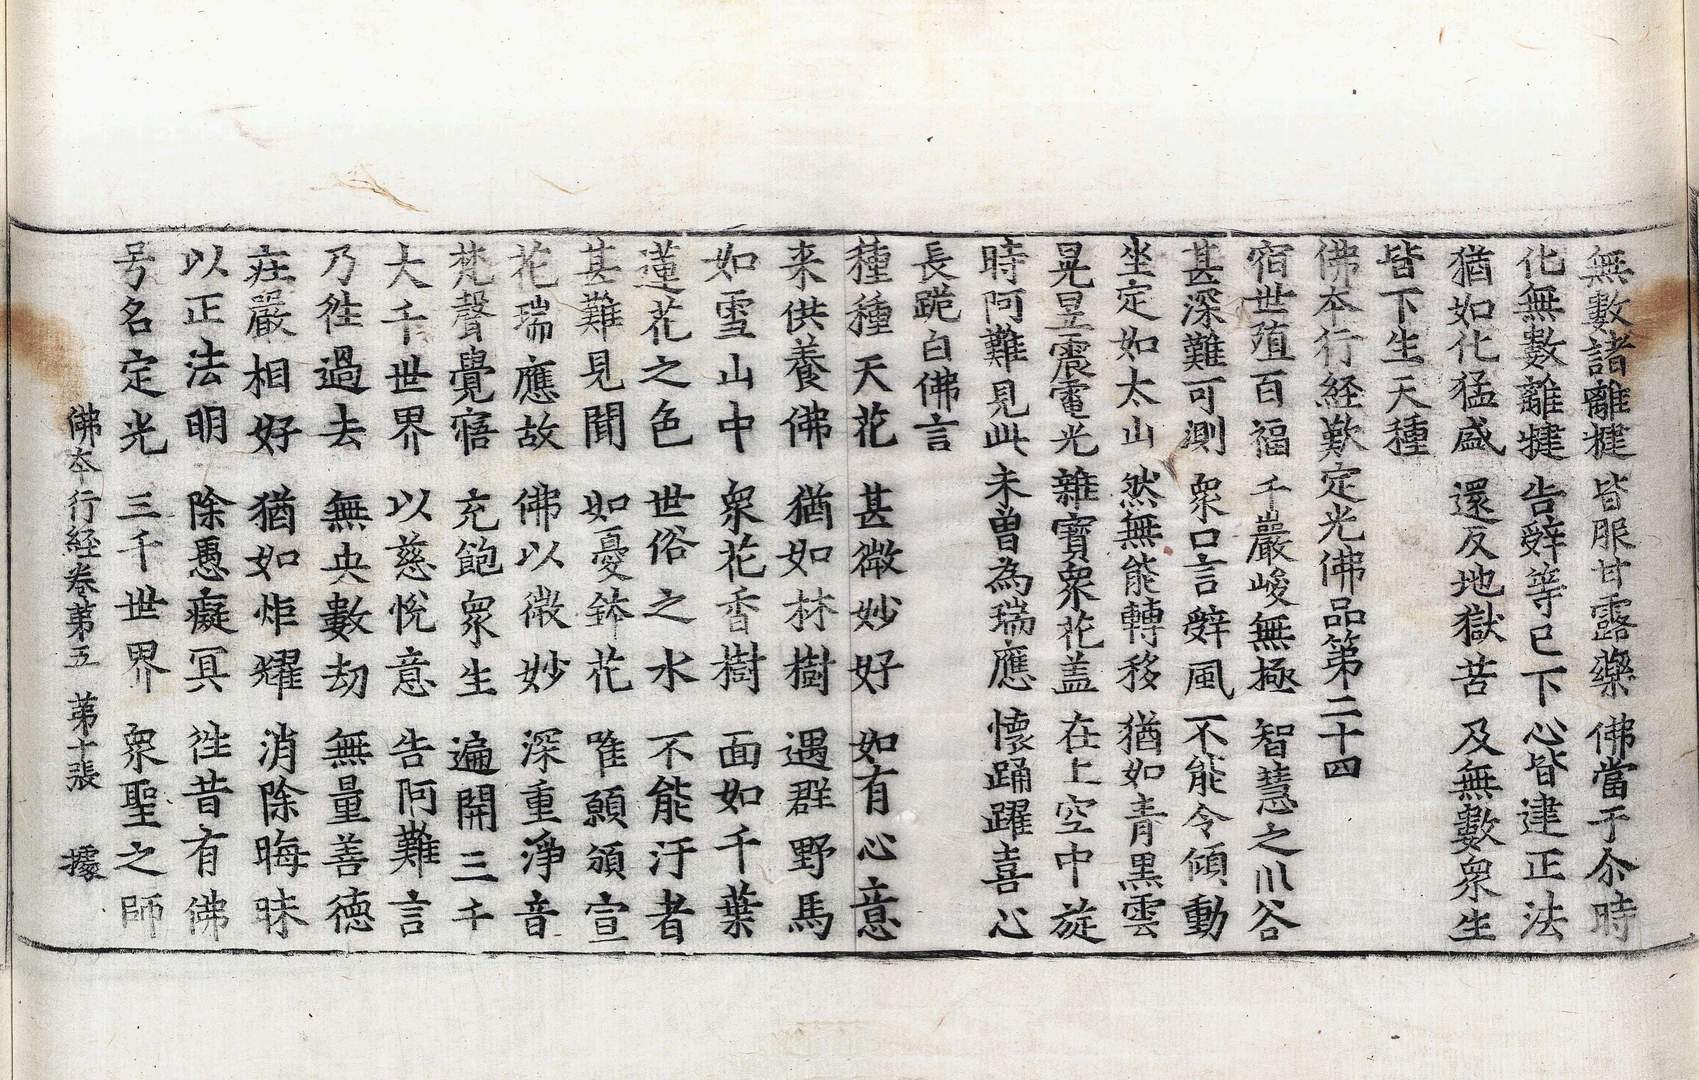 無數諸離揵 皆服甘露藥 佛當于尒時
化無數離揵 告辤等已下 心皆建正法
猶如化猛盛 還反地獄苦 及無數衆生
皆下生天種
佛夲行経歎定光佛品第二十四
宿世殖百福 千巖峻無極 智慧之川谷
甚深難可測 衆口言辤風 不能令傾動
坐定如太山 然無能轉移 猶如青黒雲
晃昱震電光 雜寶衆花盖 在上空中旋
時阿難見此 未曽為瑞應 懷踊躍喜心
長跪白佛言
種種天花 甚微妙好 如有心意
来供養佛 猶如林樹 遇群野馬
如雪山中 衆花香樹 面如千葉
蓮花之色 世俗之水 不能汙者
甚難見聞 如憂鉢花 唯願頒宣
花瑞應故 佛以微妙 深重淨音
梵聲覺寤 充飽衆生 遍開三千
大千世界 以慈恱意 告阿難言
乃徃過去 無央數劫 無量善德
莊嚴相好 猶如炬耀 消除晦昧
以正法明 除愚癡冥 徃昔有佛
号名定光 三千世界 衆聖之師
佛夲行経卷第五 苐十張 據